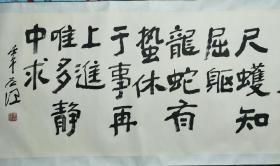 尺蠖知
屈軀
龍蛇有
蟄休
于事再
上進
唯多靜
中求
壬午